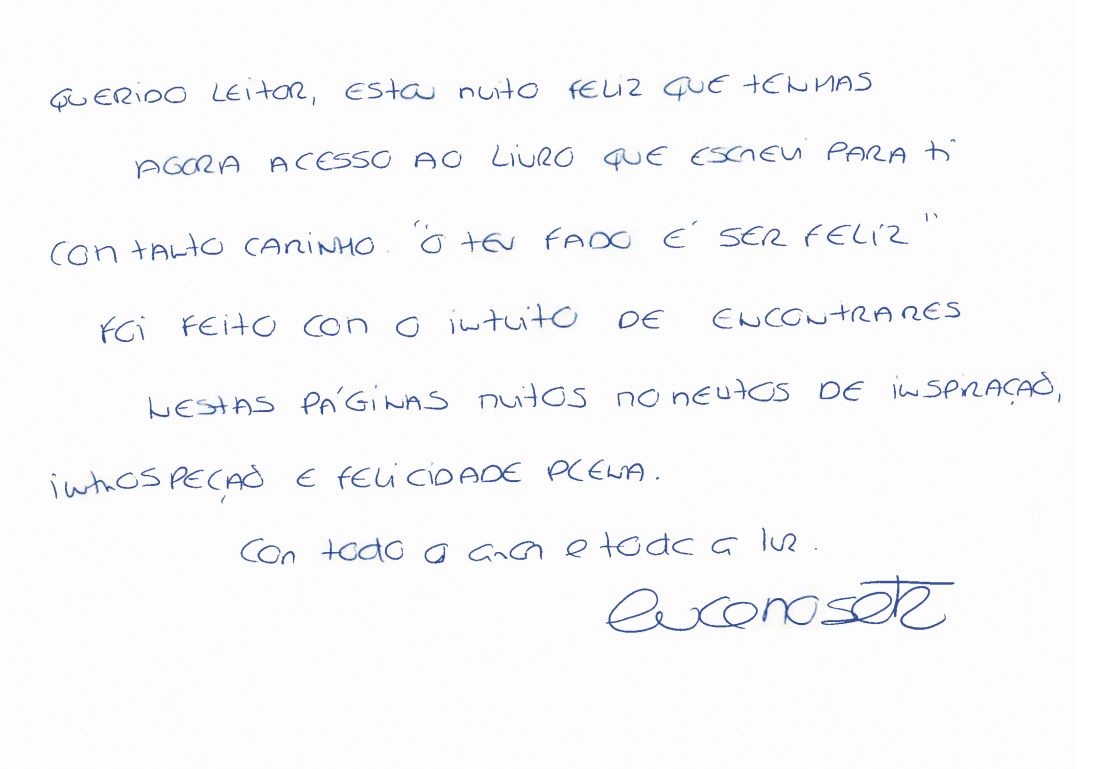 QUERIDO LEITOR, ESTOU MUITO FELIZ QUE TENHAS
AGORA ACESSO AO LIVRO QUE ESCREVI PARA TI
COM TANTO CARINHO. "O TEU FADO É SER FELIZ"
FOI FEITO COM O INTUITO DE ENCONTRARES
NESTAS PÁGINAS MUITOS MOMENTOS DE INSPIRAÇÃO,
INTROSPEÇÃO E FELICIDADE PLENA.
Com todo o amor e toda a luz.